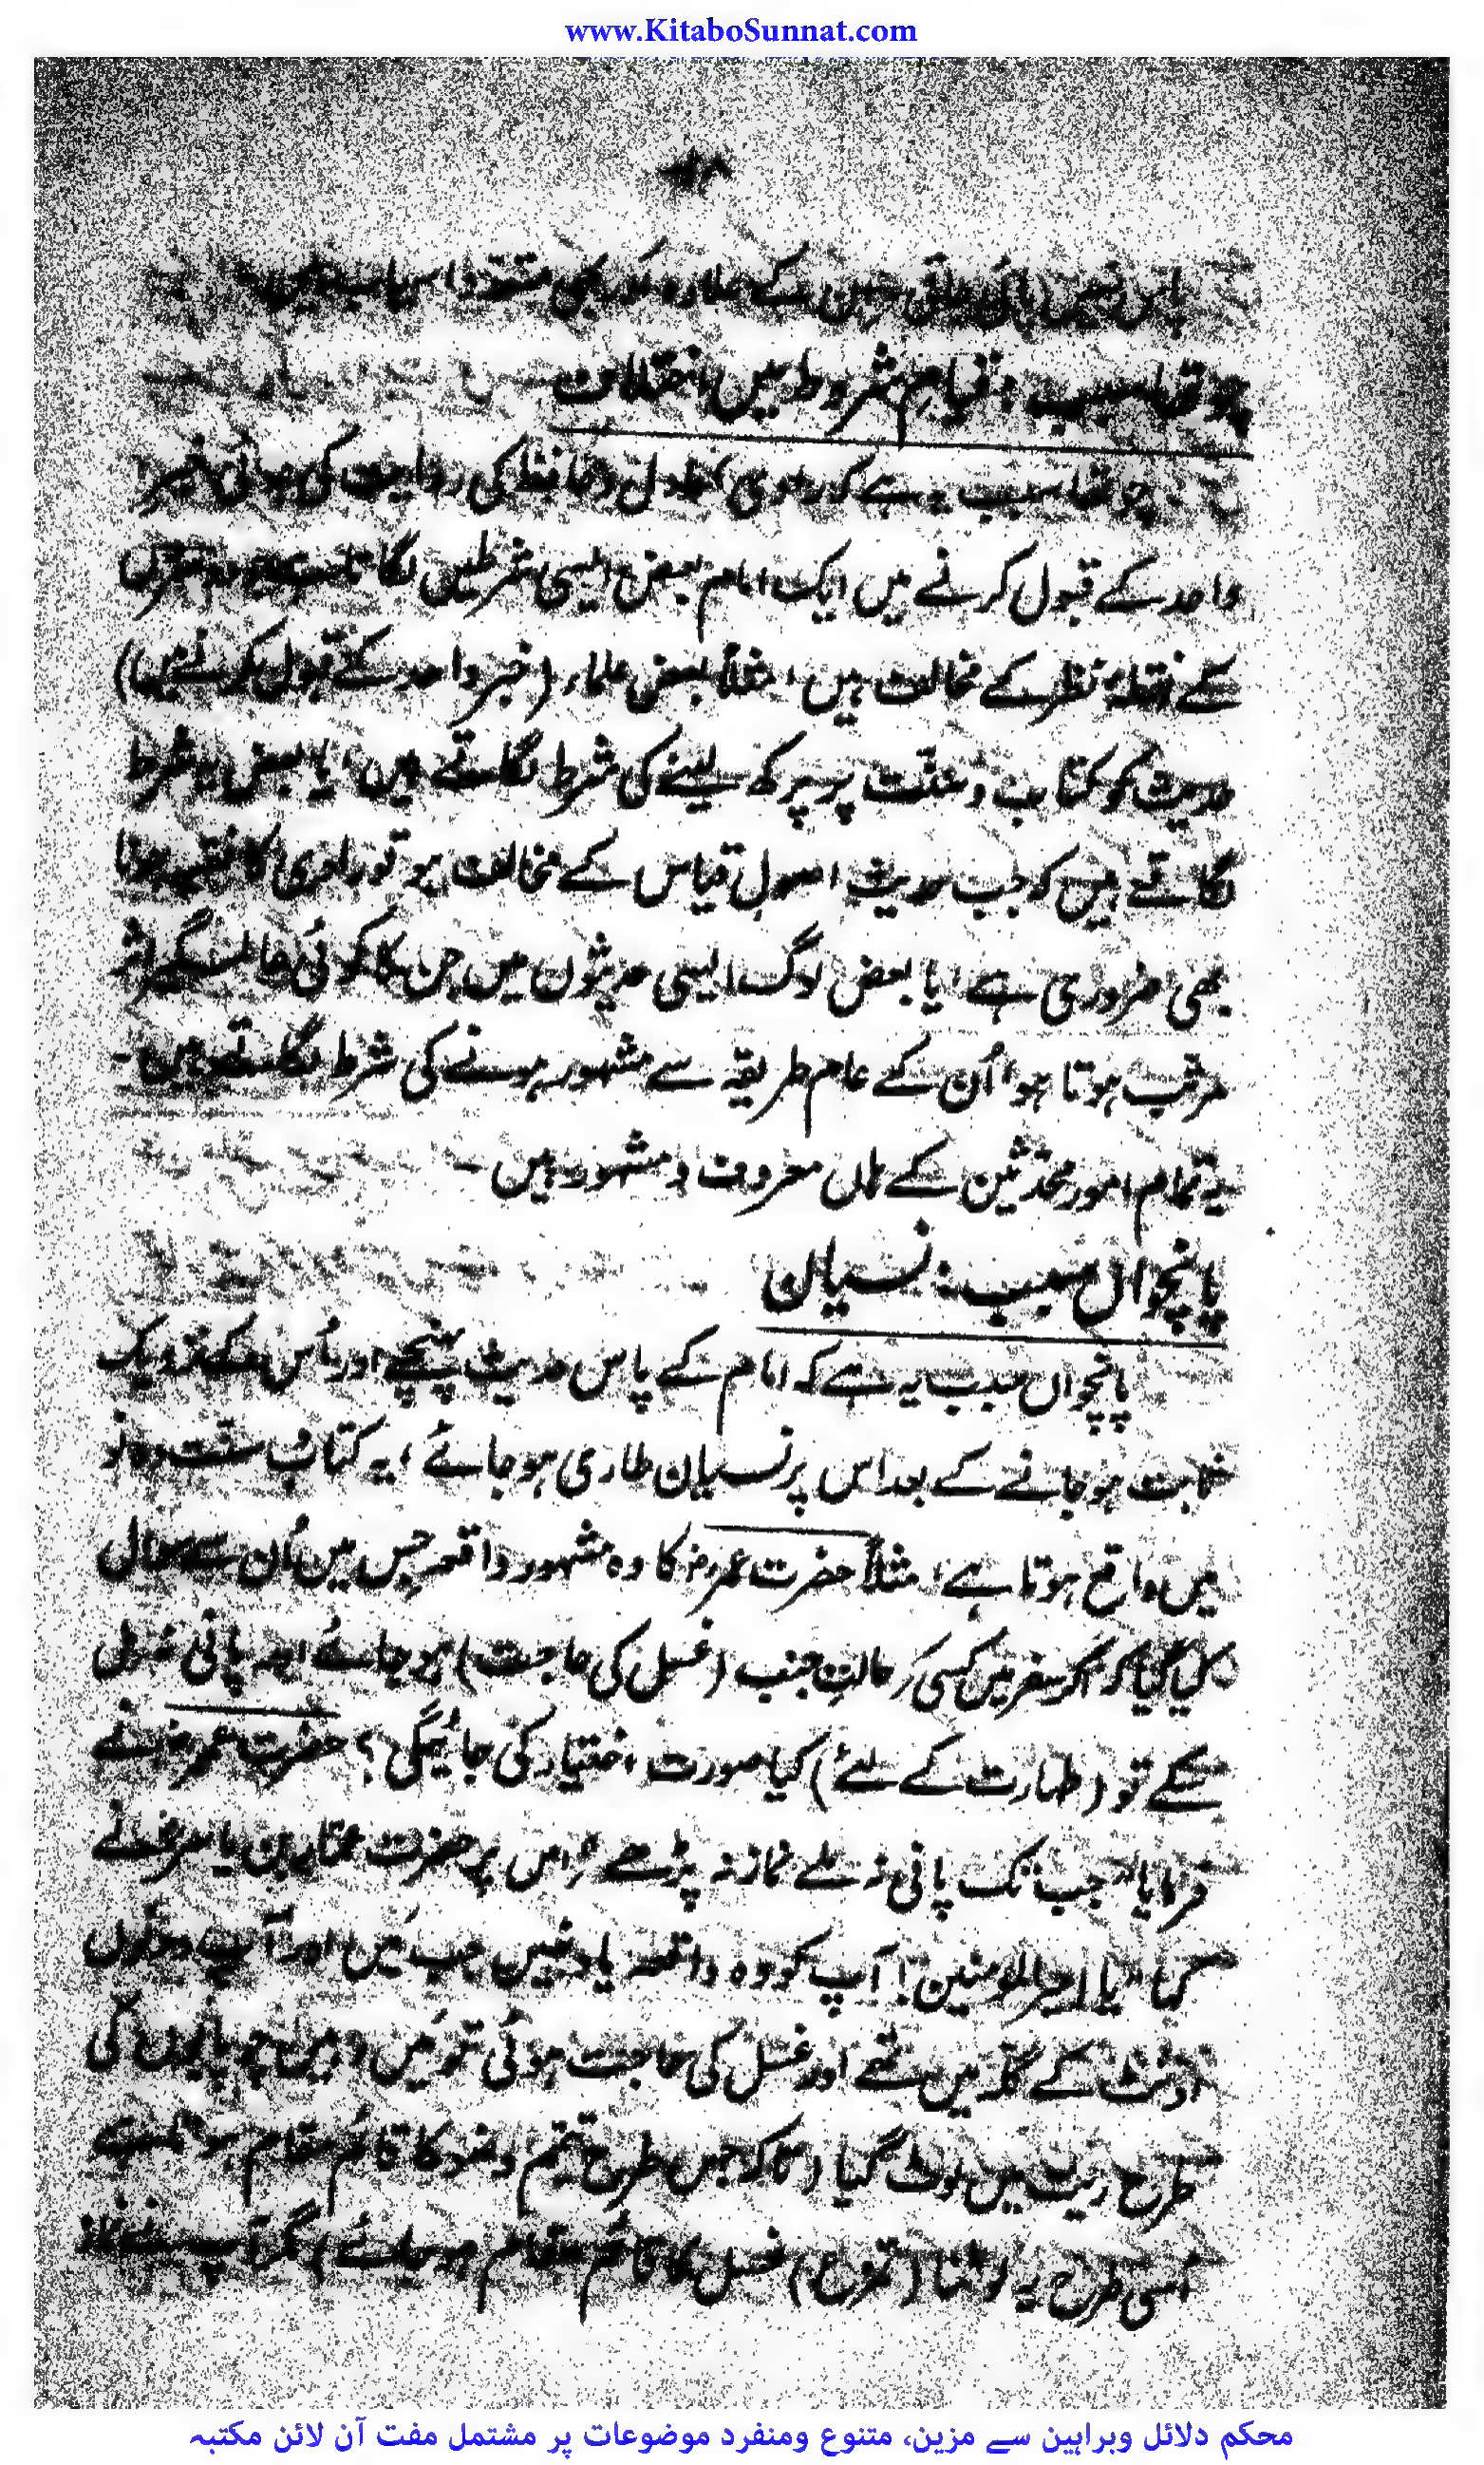 www.KitaboSunnat.com
پاس نہیں پائی جاتی جن کے علاوہ اور بھی متعدد اسباب ہیں
چوتھا سبب : قیامِ شروط میں اختلاف
چوتھا سبب یہ ہے کہ راوی عادل و حافظ کی روایت کی ہوئی خبر
واحد کے قبول کرنے میں ایک امام بعض ایسی شرطیں لگاتا ہے جو دوسروں
کے نقطۂ نظر کے مخالف ہیں، مثلاً بعض علماء (خبر واحد کے قبول کرنے میں)
حدیث کو کتاب و سنّت پر پرکھ لینے کی شرط لگاتے ہیں، یا بعض یہ شرط
لگاتے ہیں کہ جب حدیث اصولِ قیاس کے مخالف ہو تو راوی کا فقیہ ہونا
بھی ضروری ہے، یا بعض لوگ ایسی حدیثوں میں جن کا کوئی اثر
مرتب ہوتا ہو، اُن کے عام طریقہ سے مشہور ہونے کی شرط لگاتے ہیں۔
یہ تمام امور محدثین کے ہاں معروف و مشہور ہیں۔
پانچواں سبب : نسیان
پانچواں سبب یہ ہے کہ امام کے پاس حدیث پہنچے اور اُس کے نزدیک
ثابت ہو جانے کے بعد اس پر نسیان طاری ہو جائے، یہ کتاب و سنّت دونوں
میں واقع ہوتا ہے، مثلاً حضرت عمرؓ کا وہ مشہور واقعہ جس میں اُن سے سوال
کیا گیا کہ اگر سفر میں کسی کو حالتِ جنب (غسل کی حاجت) ہو جائے اور پانی نہ مل
سکے تو (طہارت کے لئے) کیا صورت اختیار کی جائیگی؟ حضرت عمرؓ نے
فرمایا "جب تک پانی نہ ملے نماز نہ پڑھے" اس پر حضرت عمّار بن یاسرؓ نے
کہا "یا امیر المومنین! آپ کو وہ واقعہ یاد نہیں جب میں اور آپ دونوں
اونٹ کے گلہ میں تھے اور غسل کی حاجت ہوئی تو میں وہیں چوپایوں کی
طرح ریت میں لوٹ گیا (تاکہ جس طرح تیمم وضو کا قائم مقام ہوتا ہے
اسی طرح یہ لوٹنا (تمرغ) غسل کا قائم مقام ہو جائے) مگر آپ نے نماز
محکم دلائل وبراہین سے مزین، متنوع ومنفرد موضوعات پر مشتمل مفت آن لائن مکتبہ